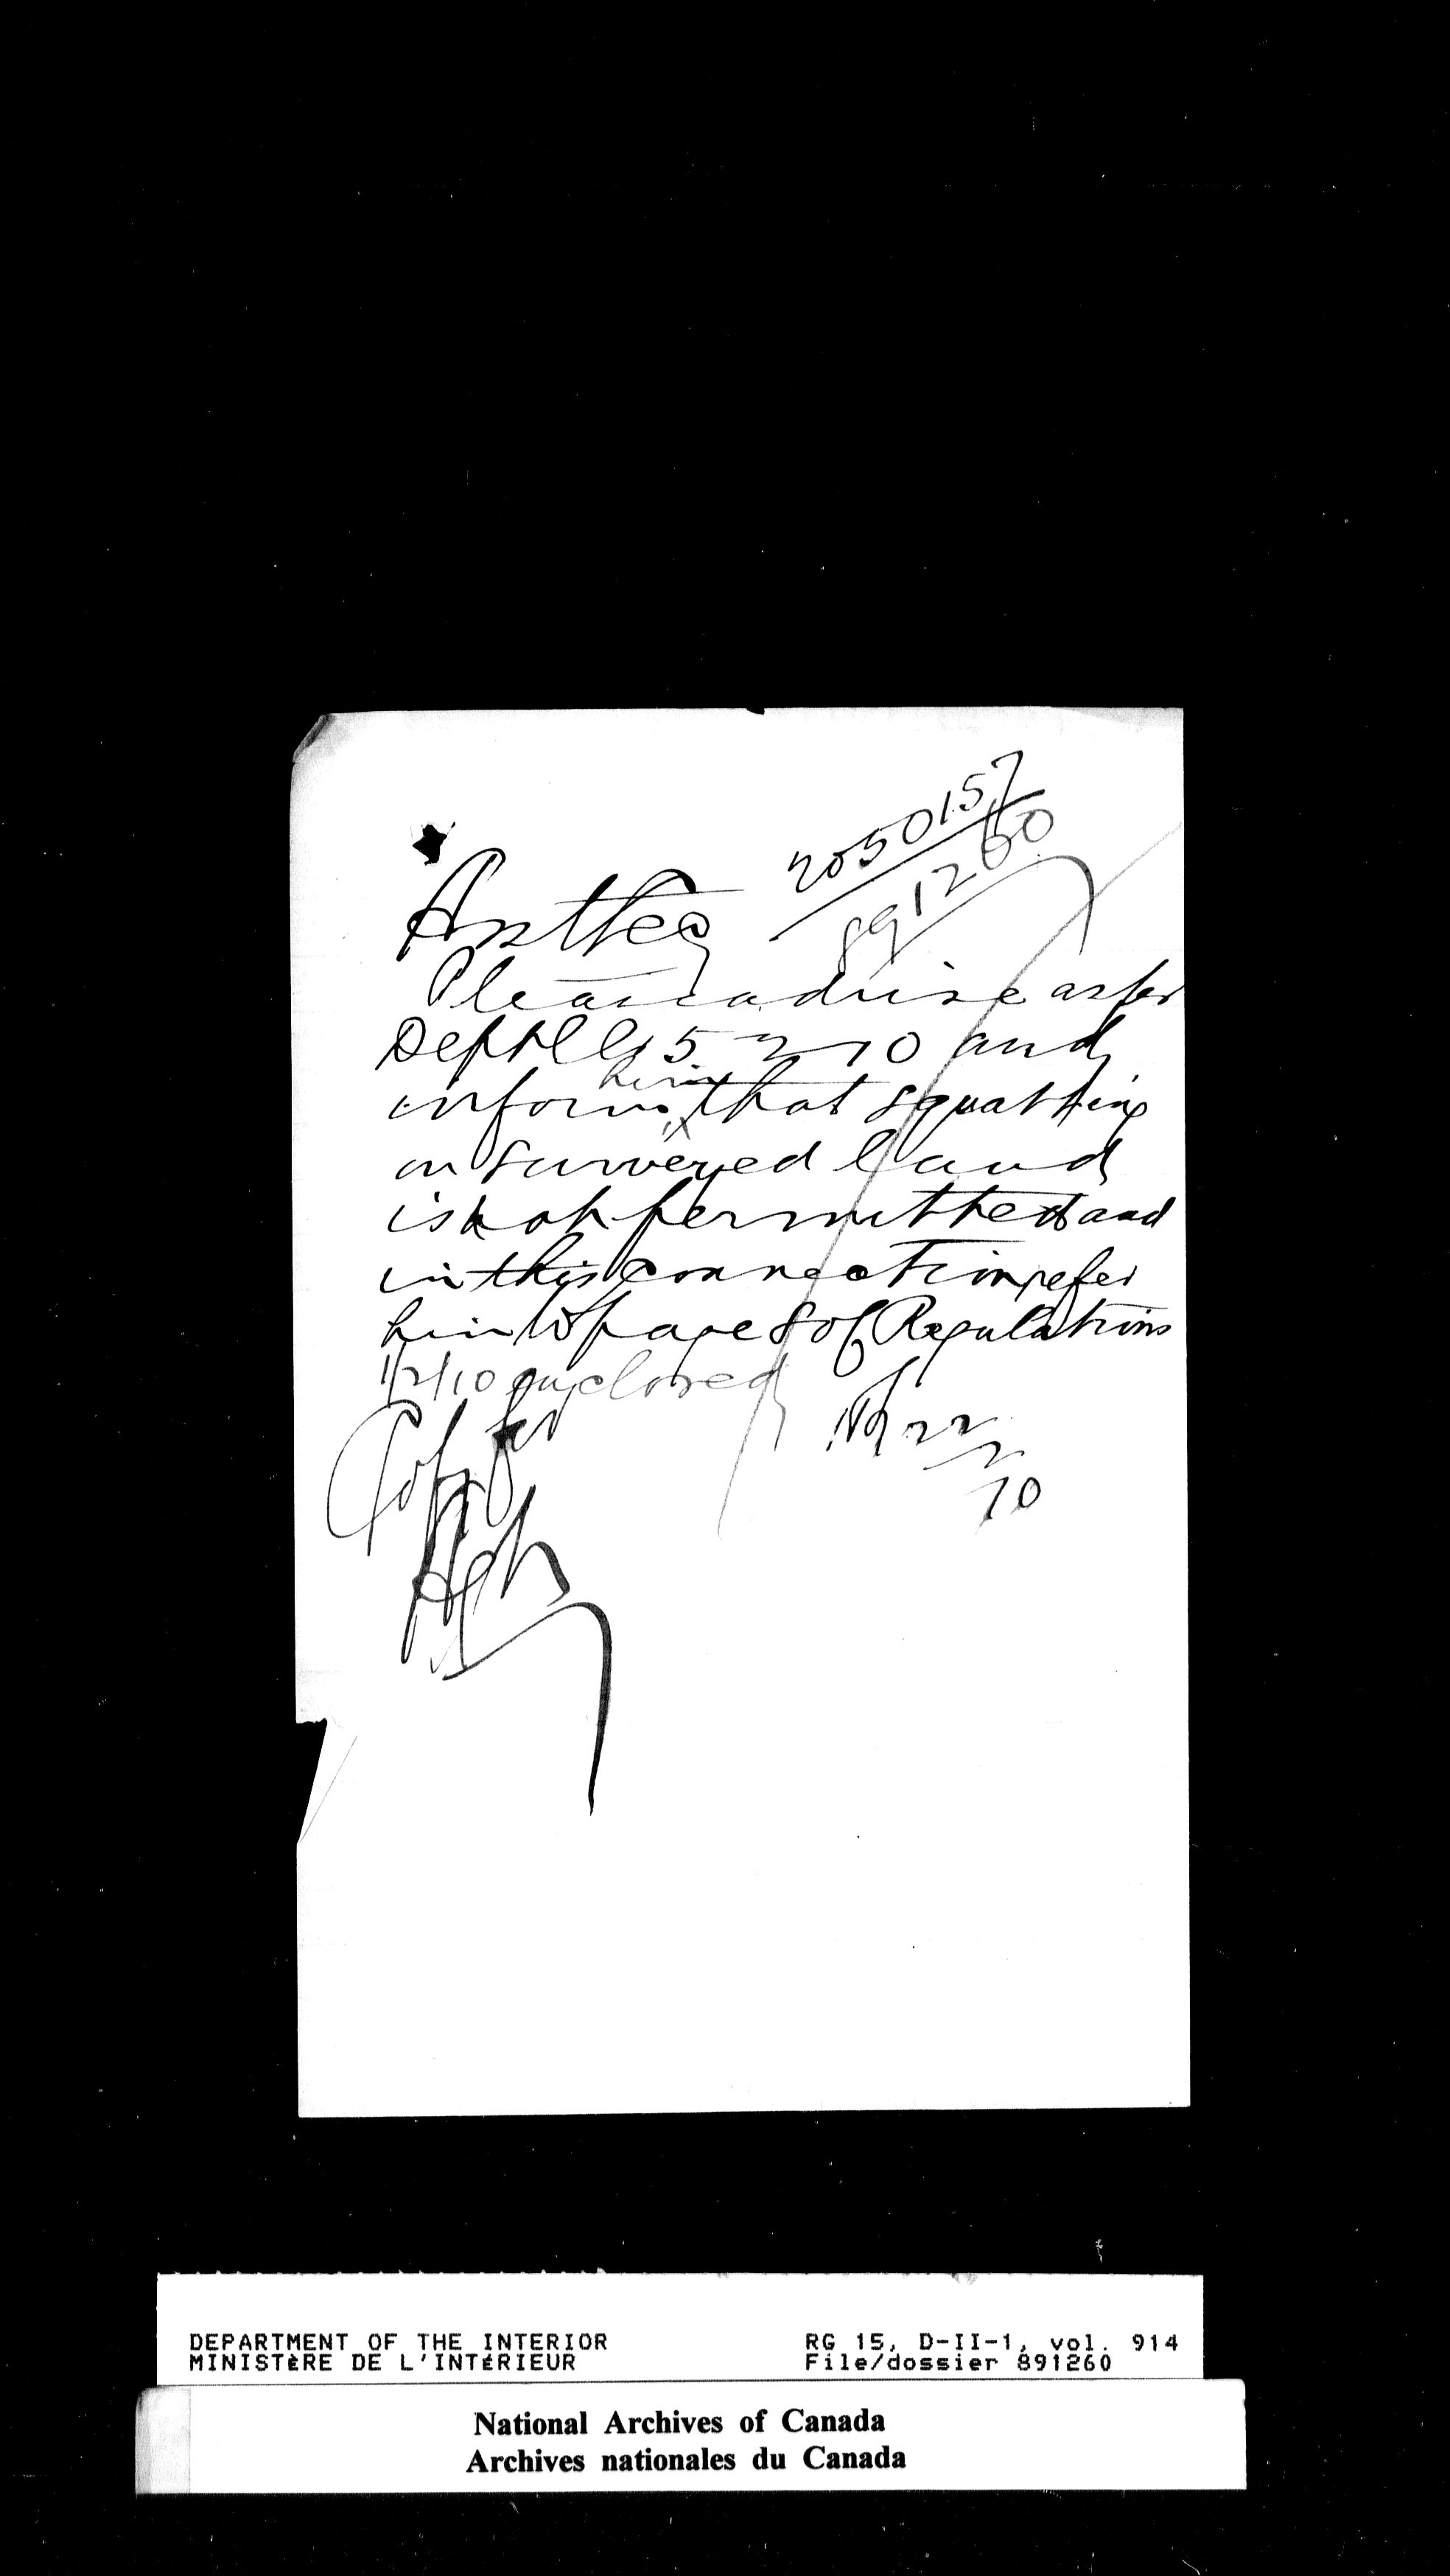 2050157
891260
Please advise as per
Dept ll 15 2 10 and
inform him that squatting
on surveyed land
is not permitted and
in this connection refer
him to page 8 of Regulations
1/2/10 enclosed
22
2
10
Copy for
DEPARTMENT OF THE INTERIOR
MINISTÈRE DE L'INTÉRIEUR
RG 15, D-II-1, vol. 914
File/dossier 891260
National Archives of Canada
Archives nationales du Canada